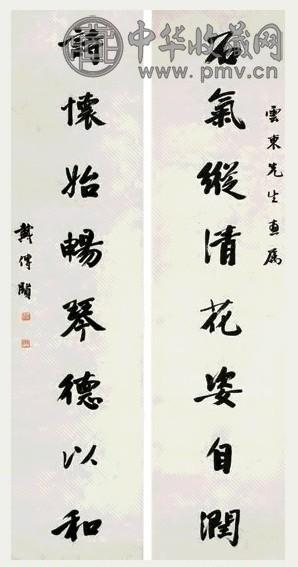 中华收藏网
www.pmv.cn
雲東先生惠屬
石氣縱清花姿自潤
詩懷始暢琴德以和
戴傳賢